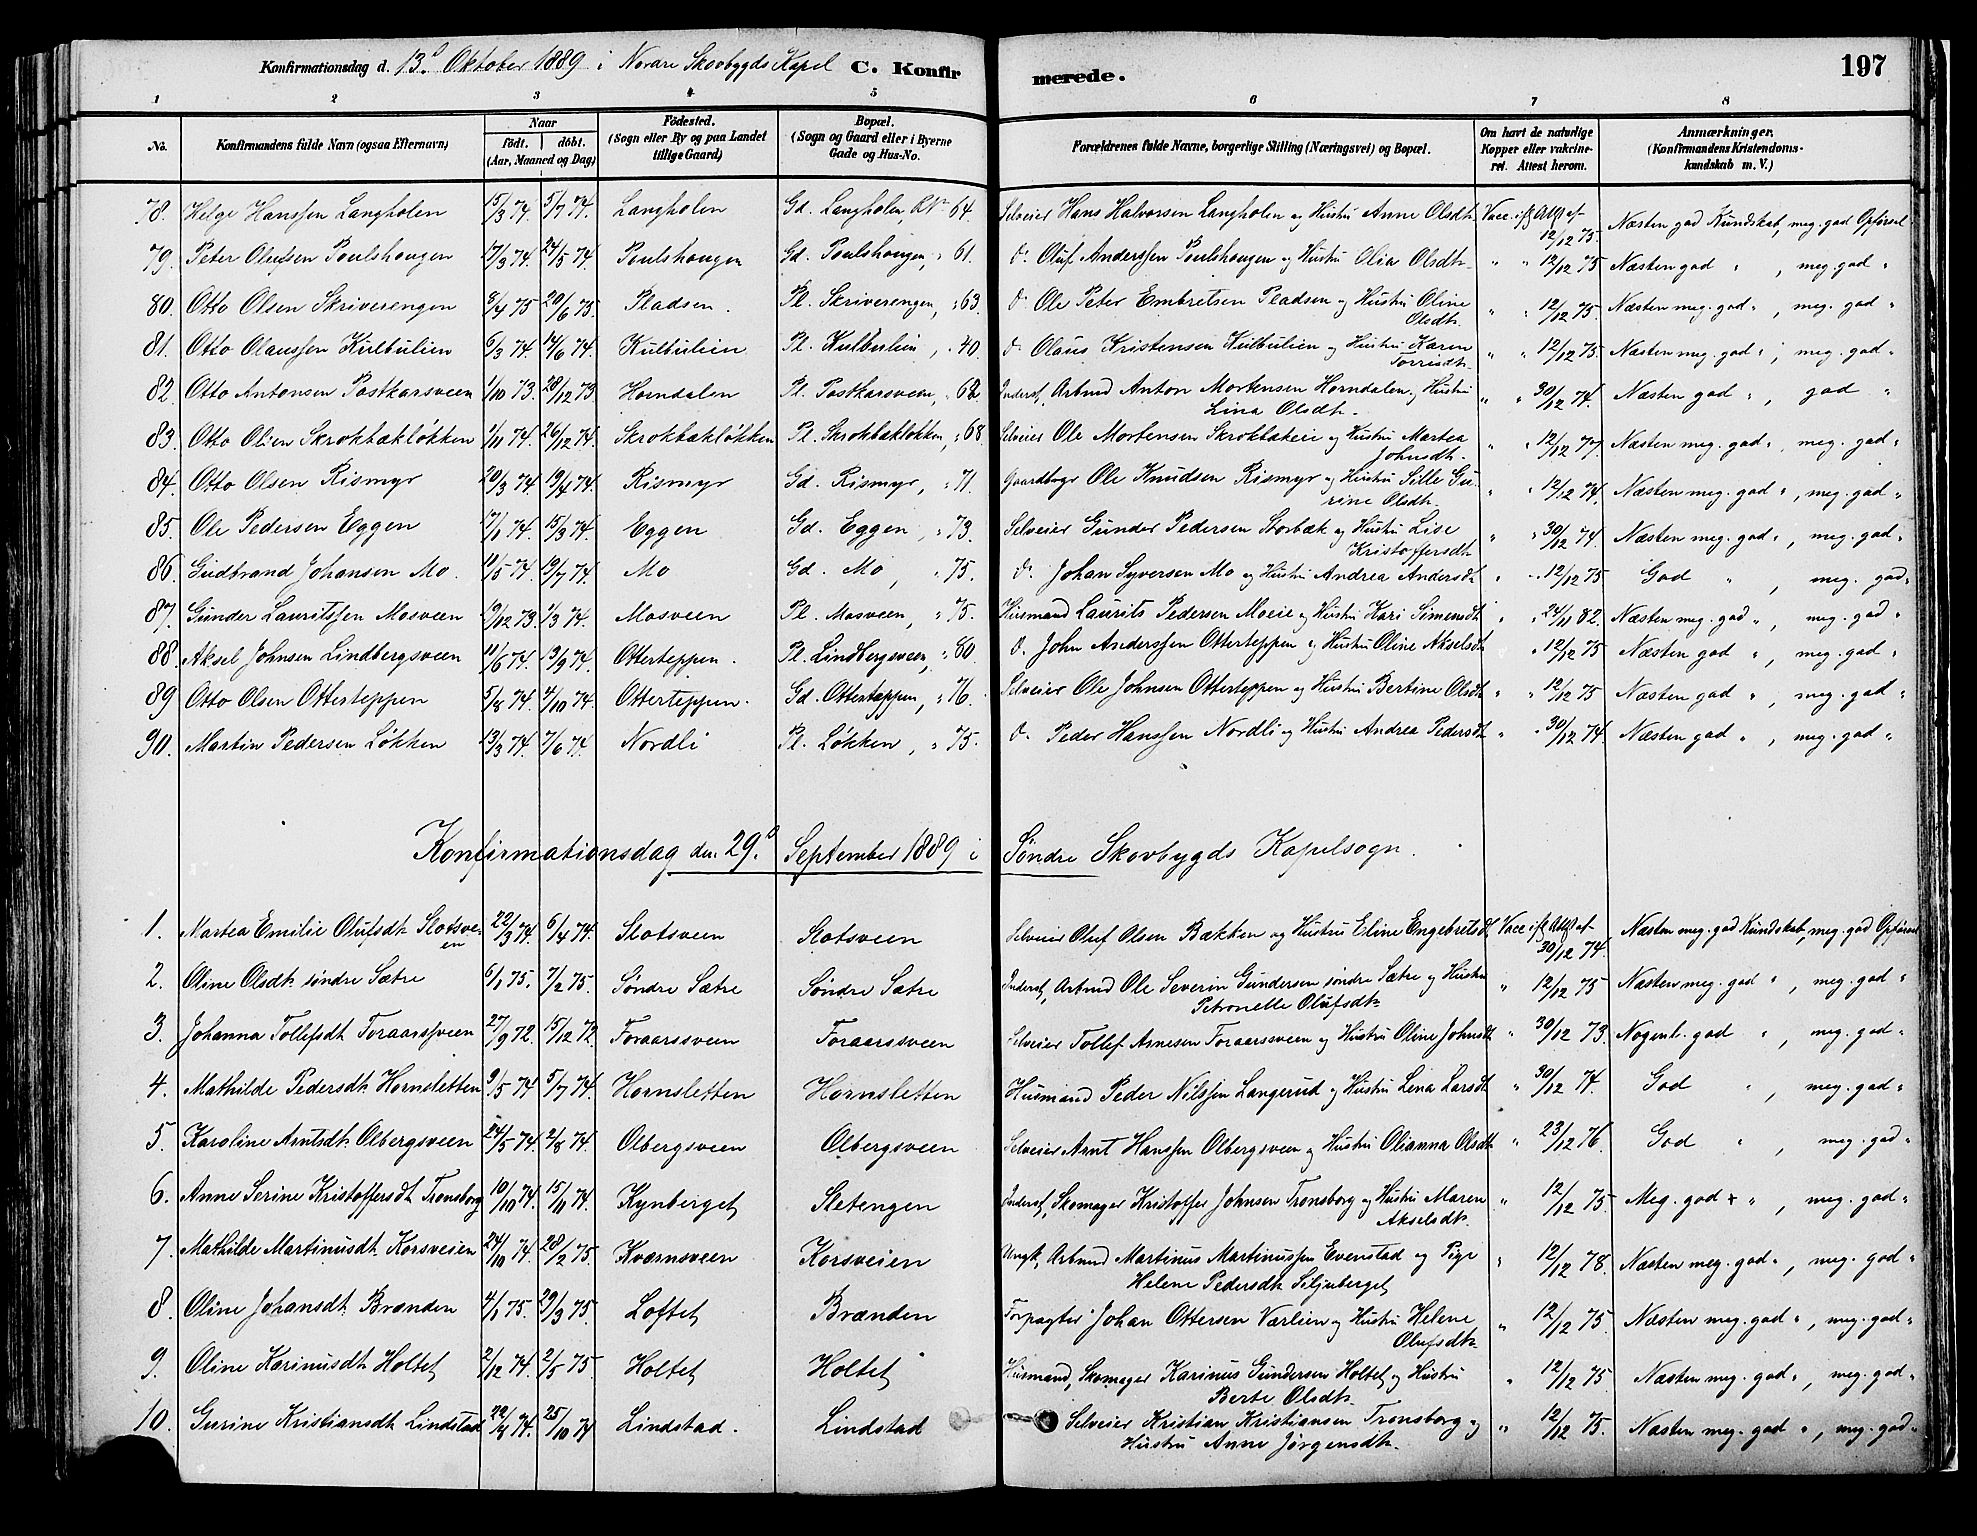 Konfirmationsdag d. 13de Oktober 1889 i Nordre Skovbygds Kapel C. Konfir merede. 197
1 2 3 4 5 6 7 8
No. Konfirmandens fulde Navn (ogsaa Efternavn) Naar født. døbt. (Aar, Maaned og Dag) Födested. (Sogn eller By og paa Landet tillige Gaard) Bopæl. (Sogn og Gaard eller i Byerne Gade og Hus-No. Forældrenes fulde Navne, borgerlige Stilling (Næringsvei) og Bopæl. Om havt de naturlige Kopper eller vakcineret. Attest herom. Anmærkninger. (Konfirmandens Kristendomskundskab m. V.)
78. Helge Hanssen Langholen 15/3 74. 5/7 74. Langholen Gd. Langholen, 64. Selveier Hans Halvorsen Langholen og Hustru Anne Olsdt. Vacc. 12/12 75. Næsten god Kundskab, meg. god Opförsel
79. Peter Olufsen Poulshaugen 17/3 74. 24/5 74. Poulshaugen Gd. Poulshaugen, " 61. do Oluf Anderssen Poulshaugen og Hustru Olia Olsdt. " " 12/12 75 Næsten god " , meg. god "
80. Otto Olsen Skriverengen 8/4 75 20/6 75. Pladsen. Pl. Skriverengen, " 63. do Ole Peter Embretsen Pladsen og Hustru Oline Olsdt. " " 12/12 75. Næsten meg. god " , meg. god "
81. Otto Olaussen Kulbulien 6/3 74. 14/6 74. Kulbulien Pl. Kulbulien, " 40. do Olaus Kristensen Kulbulien og Hustru Karen Torrisdt. " " 12/12 75. Næsten meg. god " , meg. god "
82. Otto Antonsen Postkarsveen 1/10 73. 28/12 73 Horndalen Pl. Postkarsveen, " 62 Inderst, Arbmd Anton Mortensen Horndalen og Hustru Lina Olsdt. " " 30/12 74. Næsten god " , god "
83. Otto Olsen Skrokbækløkken 1/11 74. 26/12 74. Skrokbækløkken Pl. Skrokbækløkken, " 68 Selveier Ole Mortensen Skrokbækeie og Hustru Martea Johnsdt. " " 12/12 77. Næsten meg. god " , meg. god "
84. Otto Olsen Rismyr 20/3 74. 19/4 74. Rismyr Gd. Rismyr, " 71. Gaardbrgr Ole Knudsen Rismyr og Hustru Sille Gurine Olsdt. " " 12/12 74. Næsten meg. god " , meg. god "
85. Ole Pedersen Eggen 17/1 74. 15/3 74. Eggen Gd. Eggen, " 73. Selveier Gunder Pedersen Storbæk og Hustru Lise Kristoffersdt. " " 30/12 74. Næsten meg. god " , meg. god "
86. Gudbrand Johansen Mo. 10/5 74. 19/7 74. Mo Gd. Mo, " 75. do Johan Syversen Mo og Hustru Andrea Andersdt " " 12/12 75 God " , meg. god "
87. Gunder Lauritssen Mosveen 19/12 73. 1/3 74. Mosveen Pl. Mosveen, " 75. Husmand Laurits Pedersen Moeie og Hustru Kari Simensdt " " 24/11 82. Næsten meg. god " , meg. god "
88. Aksel Johnsen Lindbergsveen 11/6 74. 13/9 74. Otterteppen. Pl. Lindbergsveen, " 80. do John Anderssen Otterteppen og Hustru Oline Akselsdt " " 12/12 75 Næsten god " , meg. god "
89 Otto Olsen Otterteppen 5/8 74. 4/10 74. Otterteppen. Gd. Otterteppen, " 76. Selveier Ole Johnsen Otterteppen og Hustru Bertine Olsdt " " 12/12 75 Næsten god " , meg. god "
90. Martin Pedersen Løkken 13/3 74. 7/6 74. Nordli Pl. Løkken, " 75. do Peder Hanssen Nordli og Hustru Andrea Pedersdt " " 30/12 74. Næsten god " , meg. god "
Konfirmationsdag den 29de September 1889 i Søndre Skovbygds Kapelsogn.
1. Martea Emilie Olufsdt. Slotsveen 22/3 74. 6/4 74. Slotsveen Slotsveen Selveier Oluf Olsen Bakken og Hustru Eline Engebretsdt Vacc. 30/12 74. Næsten meg. god Kundskab, meg. god Opförsel
2. Oline Olsdt. søndre Sætre 6/1 75. 7/2 75. Søndre Sætre Søndre Sætre Inderst, Arbmd Ole Severin Gundersen søndre Sætre og Hustru Petronelle Olufsdt. " 12/12 75 Næsten meg. god " , meg. god "
3. Johanna Tollefsdt Foraarsveen 27/9 72. 15/12 72. Foraarssveen Foraarssveen Selveier Tollef Arnesen Foraarssveen og Hustru Oline Johnsdt " 30/12 73. Nogenl. god " , meg. god "
4. Mathilde Pedersdt. Hornsletten 9/5 74 5/7 74. Hornsletten Hornsletten Husmand Peder Nilssen Langerud og Hustru Lena Larsdt. " 30/12 74. God " , meg. god "
5. Karoline Arntsdt. Olbergsveen 24/5 74. 2/8 74. Olbergsveen Olbergsveen Selveier Arnt Hanssen Olbergsveen og Hustru Olianna Olsdt " 23/12 76. God " , meg. god "
6. Anne Serine Kristoffersdt Tronsborg 10/10 74. 15/11 74. Kynberget Sletengen Inderst, Skomager Kristoffer Johnsen Tronsborg og Hustru Maren Akselsdt. " 12/12 75. Meg. god + " , meg. god "
7. Mathilde Martinusdt Korsveien 24/10 74. 28/2 75. Kværnsveen Korsveien Ungk, Arbmd Martinus Martinussen Evenstad og Pige Helene Pedersdt. Siljuberget " 12/12 78. Næsten meg. god " , meg. god "
8. Oline Johansdt Brænden 4/1 75. 29/3 75. Loftet Brænden Forpagter Johan Ottersen Værlien og Hustru Helene Olufsdt. " 12/12 75. Næsten meg. god " , meg. god "
9. Oline Karinusdt Holtet 2/12 74. 2/5 75. Holtet Holtet Husmand, Skomager Karinus Gundersen Holtet og Hustru Berte Olsdt. " 12/12 75. Næsten meg. god " , meg. god "
10. Gurine Kristiansdt Lindstad 22/8 74. 25/10 74 Lindstad. Lindstad Selveier Kristian Kristiansen Tronsborg og Hustru Anne Jørgensdt. " 12/12 75. Næsten meg. god " , meg. god "